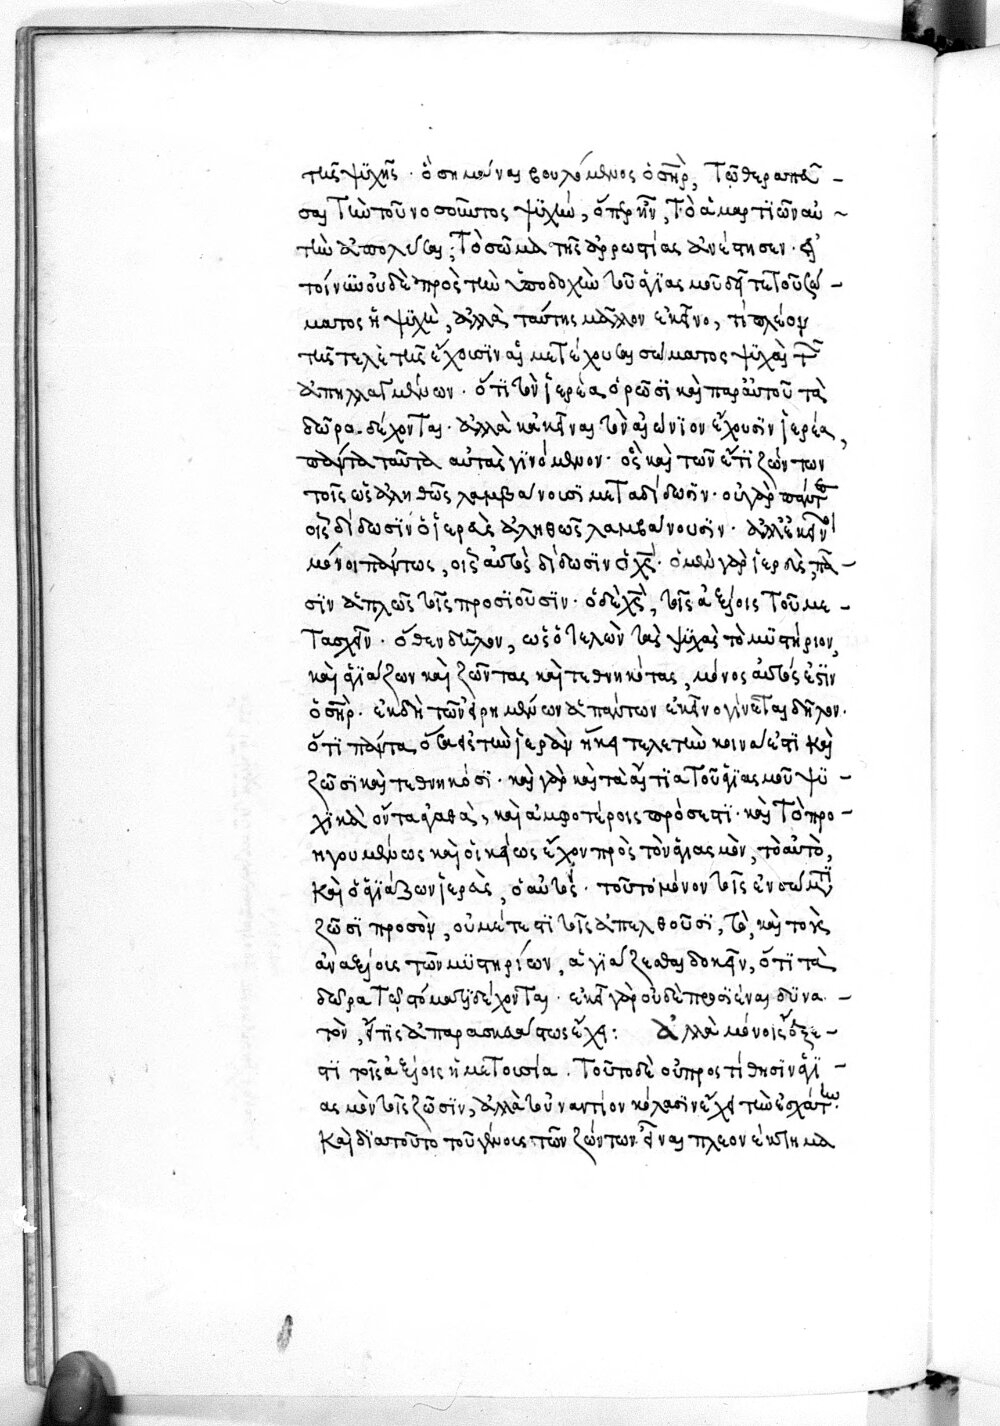 τῆς ψυχῆς · ὃ σημᾶναι βουλόμενος ὁ σ̅η̅ρ̅, τῷ θεραπεῦ –
σαι τὴν τοῦ νοσοῦντος ψυχήν, ὅπερ ἦν, τὸ ἁμαρτιῶν αὐ –
τὴν ἀπολῦσαι, τὸ σῶμα τῆς ἀρρωστίας ἀνέστησεν · εἰ
τοίνυν οὐδὲ πρὸς τὴν ὑποδοχὴν τοῦ ἁγιασμοῦ δεῖται τοῦ σώ –
ματος ἡ ψυχή, ἀλλὰ ταύτης μᾶλλον ἐκεῖνο, τί πλέον
τῆς τελετῆς ἔχουσιν αἱ μετέχουσαι σώματος ψυχαὶ τῶν
ἀπηλλαγμένων · ὅτι τὸν ἱερέα ὁρῶσι καὶ παρ αὐτοῦ τὰ
δῶρα δέχονται · ἀλλὰ κἀκεῖναι τὸν αἰώνιον ἔχουσιν ἱερέα,
πάντα ταῦτα αὐταῖς γινόμενον · ὃς καὶ τῶν ἔτι ζώντων
τοῖς ὡς ἀληθῶς λαμβάνουσι μεταδίδωσιν · οὐ γὰρ πάντες
οἷς δίδωσιν ὁ ἱερεὺς ἀληθῶς λαμβάνουσιν · ἀλλ ἐκεῖνοι
μόνοι πάντως, οἷς αὐτὸς δίδωσιν ὁ χ̅ς̅ · ὁ μὲν γὰρ ἱερεὺς, πᾶ –
σιν ἁπλῶς τοῖς προσιοῦσιν · ὁ δὲ χ̅ς̅, τοῖς ἀξίοις τοῦ με –
τασχεῖν · ὅθεν δῆλον, ὡς ὁ τελῶν ταῖς ψυχαῖς τὸ μυστήριον,
καὶ ἁγιάζων καὶ ζῶντας καὶ τεθνηκότας, μόνος αὐτός ἐστιν
ὁ σ̅η̅ρ̅ · ἐκ δὴ τῶν εἰρημένων ἁπάντων ἐκεῖνο γίνεται δῆλον ·
ὅτι πάντα ὅσα ἐστὶ τὴν ἱερὰν ἥκει τελετὴν κοινά ἐστι καὶ
ζῶσι καὶ τεθνηκόσι · καὶ γὰρ καὶ τὰ αἴτια τοῦ ἁγιασμοῦ ψυ –
χικὰ ὄντα ἀγαθὰ, καὶ ἀμφοτέροις πρόσεστι · καὶ τὸ προ –
ηγουμένως καὶ οἰκείως ἔχον πρὸς τὸν ἁγιασμὸν, τὸ αὐτὸ,
καὶ ὁ ἁγιάζων ἱερεὺς, ὁ αὐτός · τοῦτο μόνον τοῖς ἐν σώματι
ζῶσι προσὸν, οὐ μέτεστι τοῖς ἀπελθοῦσι, τὸ, καὶ τοὺς
ἀναξίους τῶν μυστηρίων, ἁγιάζεσθαι δοκεῖν, ὅτι τὰ
δῶρα τῷ στόματι δέχονται · ἐκεῖ γὰρ οὐδὲ προσιέναι δυνα –
τὸν, εἴ τις ἀπαρασκευάστως ἔχει : ἀλλὰ μόνοις ἔξε –
στι τοῖς ἀξίοις ἡ μετουσία. τοῦτο δὲ οὐ προστίθησιν ἁγι –
ασμὸν τοῖς ζῶσιν, ἀλλὰ τοὐναντίον κόλασιν ἔχει τὴν ἐσχάτην ·
καὶ διὰ τοῦτο τοῦ γένους τῶν ζώντων εἶναι πλέονέκτημα